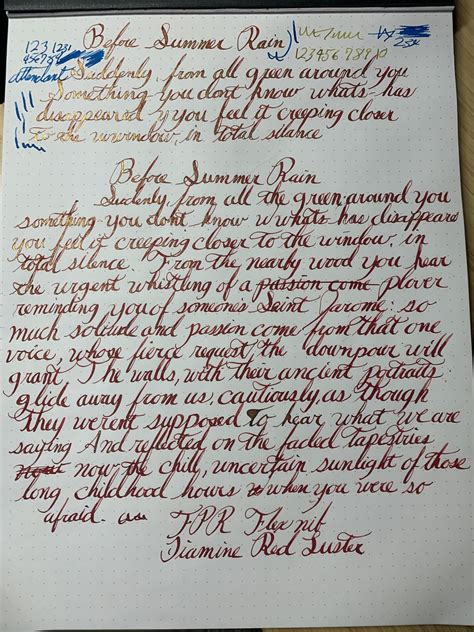 Before Summer Rain
123 123
123456 789 10
254
Attendant Suddenly, from all green around you
Something you dont know whats has
disappeared yyou feel it creeping closer
to the wwindow, in total silance
Before Summer Rain
Suddenly, from all the green around you
something you dont know wwhats has disappeared
you feel it creeping closer to the window, in
total silence. From the nearby wood you hear
the urgent whistling of a passion come plover
reminding you of someones Saint Jarome: so
much solitude and passion come from that one
voice, whose fierce request, the downpour will
grant. The walls, with their ancient portraits
glide away from us, cautiously, as though
They werent supposed to hear what we are
saying And reflected on the faded tapestries
now, the chill, uncertain sunlight of those
long, childhood hours when you were so
afraid.
FPR Flex nib
Diamine Red Luster